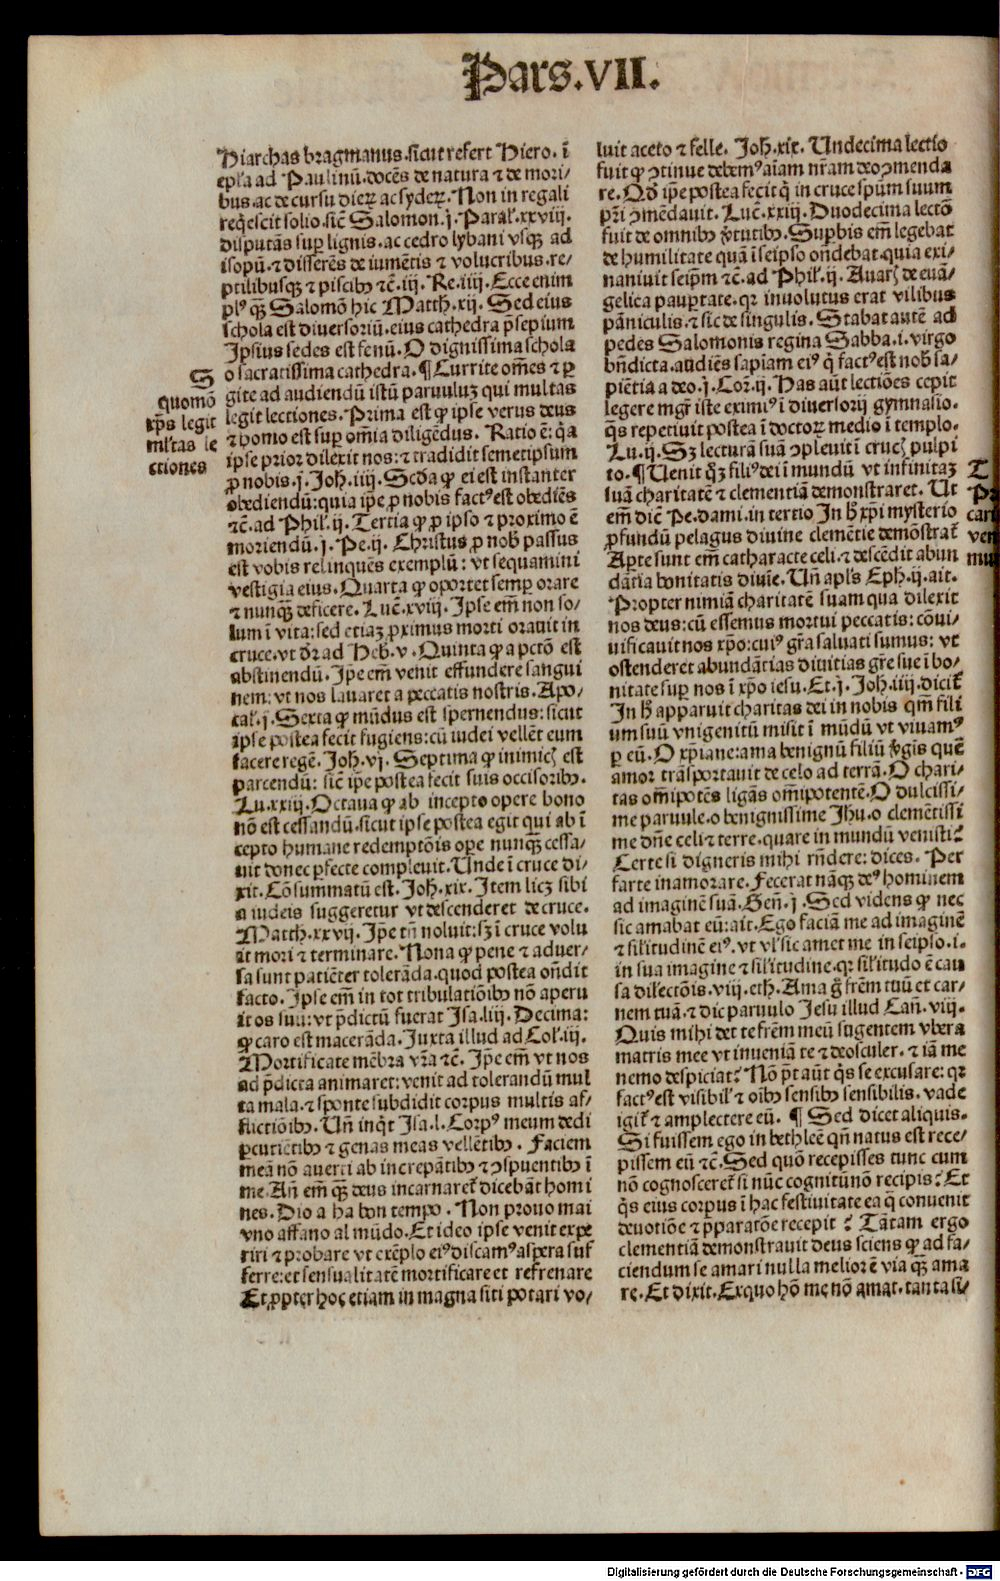 Pars.VII.
Hiarchas bragmanus.sicut refert Hiero. ī
epl̄a ad Paulinū.docēs de natura ⁊ de mori⸗
bus.ac de cursu dierꝝ ac syderꝝ. Non in regali
req̇escit solio.sic̄ Salomon.j. Paral̄.xxviij.
disputās suꝑ lignis.ac cedro lybani vsqꝫ ad
isopū.⁊ disserēs de iumētis ⁊ volucribus.re⸗
ptilibusqꝫ ⁊ piscibꝰ ⁊c̄.iij. Re.iiij. Ecce enim
plꝰ qꝫ̄ Salomōn hic Matth.xij. Sed eius
schola est diversoriū.eius cathedra p̄sepium
Ipsius sedes est fenū.O dignissima schola
o sacratissima cathedra.¶Currite om̄es ⁊ ꝑ
gite ad audiendū istū paruuluꝫ qui multas
legit lectiones. Prima est ꝙ ipse verus deus
⁊ homo est suꝑ om̄ia diligēdus. Ratio ē: q̇a
ipse prior dilexit nos: ⁊ tradidit semetipsum
ꝓ nobis.j. Joh̄.iiij. Scd̄a ꝙ ei est instanter
obediendū:quia ip̄e ꝓ nobis factꝰ est obediēs
⁊c̄.ad Phil̄.ij. Tertia ꝙ ꝓ ipso ⁊ proximo ē
moriendū.j. Pe.ij. Christus ꝓ nob̄ passus
est vobis relinquēs exemplū: vt sequamini
vestigia eius. Quarta ꝙ oportet semꝑ orare
⁊ nunqꝫ̄ deficere. Luc̄.xviij. Ipse em̄ non so⸗
lum ī vita:sed etiaꝫ ꝓximus morti orauit in
cruce.vt dr̄ ad Heb̄.v. Quinta ꝙ a pctō est
abstinendū. Ip̄e em̄ venit effundere sangui
nem:vt nos lauaret a peccatis nostris. Apo⸗
cal̄.j. Sexta ꝙ mūdus est spernendus:sicut
ipse postea fecit fugiens:cū iudei vellēt eum
facere regē. Joh̄.vj. Septima ꝙ inimicꝭ est
parcendū: sic̄ ip̄e postea fecit suis occisoribꝰ.
Lu.xxiij. Octaua ꝙ ab incepto opere bono
nō est cessandū.sicut ipse postea egit qui ab ī
cepto humane redemptōis oꝑe nunqꝫ̄ cessa⸗
uit donec ꝑfecte compleuit. Unde ī cruce di⸗
xit. Cōsummatū est. Joh̄.xix. Item licꝫ sibi
a iudeis suggeretur vt descenderet de cruce.
Matth.xxvij. Ip̄e tn̄ noluit:sꝫ ī cruce volu
it mori ⁊ terminare. Nona ꝙ pene ⁊ aduer⸗
sa sunt patiēter tolerāda.quod postea on̄dit
facto. Ipse em̄ in tot tribulatiōibꝰ nō aperu
it os suū: vt p̄dictū fuerat Isa.liij. Decima:
ꝙ caro est macerāda. Juxta illud ad Col̄.iij.
Mortificate mēbra vr̄a ⁊c̄. Ip̄e em̄ vt nos
ad p̄dicta animaret: venit ad tolerandū mul
ta mala.⁊ sponte subdidit corpus multis af⸗
flictiōibꝰ. Un̄ inq̇t Isa.l. Corpꝰ meum dedi
ꝑcutiētibꝰ ⁊ genas meas vellētibꝰ. Faciem
meā nō auerti ab increpātibꝰ ⁊ ꝯspuentibꝰ ī
me. An̄ em̄ qꝫ̄ deus incarnaret᷑ dicebāt homi
nes. Dio a ha bon tempo. Non prouo mai
vno affano al mūdo. Et ideo ipse venit expe
riri ⁊ probare vt exēplo eiꝰ discamꝰ aspera suf
ferre:et sensualitatē mortificare et refrenare
Et ꝓpter hoc etiam in magna siti potari vo⸗
S
quomō
xp̄s legit
ml̄tas le
ctiones
luit aceto ⁊ felle. Joh̄.xix. Undecima lectio
fuit ꝙ ꝯtinue debemꝰ aīam nr̄am deo ꝯmenda
re. Qd̄ ip̄e postea fecit q̇ in cruce spūm suum
pr̄i ꝯmēdauit. Luc̄.xxiij. Duodecima lectō
fuit de omnibꝰ v̄tutibꝰ. Suꝑbis em̄ legebat
de humilitate quā ī seipso on̄debat.quia exi⸗
naniuit seip̄m ⁊c̄.ad Phil̄.ij. Auarꝭ de euā⸗
gelica pauꝑtate.qr inuolutus erat vilibus
pāniculis.⁊ sic de singulis. Stabat autē ad
pedes Salomonis regina Sabba.i. virgo
bn̄dicta.audiēs sapīam eiꝰ q̄ factꝰ est nob̄ sa⸗
piētia a deo.j. Cor̄.ij. Has aūt lectiōes cepit
legere mgr̄ iste eximiꝰ ī diuersorij gymnasio.
q̄s repetiuit postea ī doctoꝝ medio ī templo.
Lu.ij. Sꝫ lecturā suā ꝯpleuit ī crucꝭ pulpi
to.¶Uenit g̊ꝫ filiꝰ dei ī mundū vt infinitaꝫ
suā charitatē ⁊ clementiā demonstraret. Ut
em̄ dic̄ Pe.dami.in tertio In h̄ xp̄i mysterio
ꝓfundū pelagus diuine clemētie demōstrat᷑
Aꝑte sunt em̄ catharacte celi.⁊ descēdit abun
dātia bonitatis diuīe. Un̄ apl̄s Eph̄.ij.ait.
Propter nimiā charitatē suam qua dilexit
nos deus:cū essemus mortui peccatis: cōui⸗
uificauit nos xp̄o:cuiꝰ gr̄a saluati sumus: vt
ostenderet abundātias diuitias gr̄e sue ī bo⸗
nitate suꝑ nos ī xp̄o iesu. Et.j. Joh̄.iiij.dicit᷑
In h̄ apparuit charitas dei in nobis qm̄ fili
um suū vnigenitū misit ī mūdū vt viuamꝰ
ꝑ eū.O xp̄iane:ama benignū filiū v̄gīs quē
amor trāsportauit de celo ad terrā.O chari⸗
tas om̄ipotēs ligās om̄ipotentē.O dulcissi⸗
me paruule.o benignissime Jhu.o clemētissi
me dn̄e celi ⁊ terre.quare in mundū venisti?
Certe si digneris mihi rn̄dere: dices. Per
farte inamorare. Fecerat nāqꝫ deꝰ hominem
ad imaginē suā. Gen̄.j. Sed videns ꝙ nec
sic amabat eū:ait. Ego faciā me ad imaginē
⁊ sil̄itudinē eiꝰ.vt vl̄ sic amet me in seipso.i.
in sua imagine ⁊ sil̄itudine.qr sil̄itudo ē cau
sa dilectōis.viij.eth̄. Ama g̊ fr̄em tuū et car⸗
nem tuā.⁊ dic paruulo Jesu illud Can̄.viij.
Quis mihi det te frēm meū sugentem vbera
matris mee vt inueniā te ⁊ deosculer.⁊ iā me
nemo despiciat? Nō pt̄ aūt q̇s se excusare: qr
factꝰ est visibil̄ ⁊ oībꝰ sensibꝰ sensibilis.vade
igit᷑ ⁊ amplectere eū. ¶ Sed dicet aliquis.
Si fuissem ego in bethleē qn̄ natus est rece⸗
pissem eū ⁊c̄. Sed quō recepisses tunc cum
nō cognosceret᷑ si nūc cognitū nō recipis? Et
q̇s eius corpus ī hac festiuitate ea q̄ conuenit
deuotiōe ⁊ p̄paratōe recepit? Tātam ergo
clementiā demonstrauit deus sciens ꝙ ad fa⸗
ciendum se amari nulla melior ē via qꝫ̄ ama
re. Et dixit. Ex quo hō me nō amat.tanta si⸗
Digitalisierung gefördert durch die Deutsche Forschungsgemeinschaft - DFG